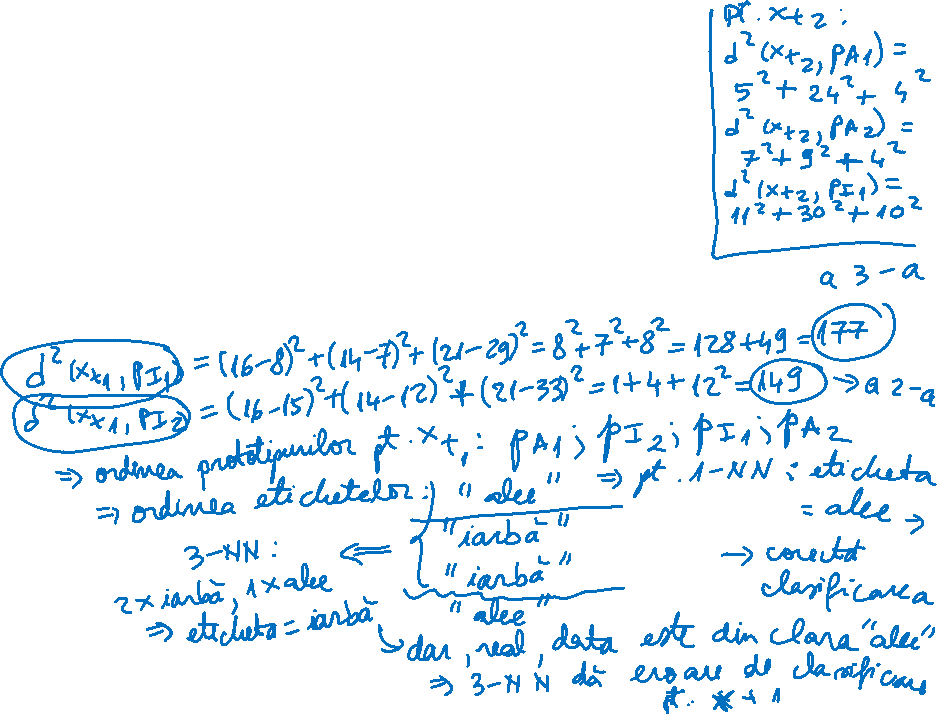 pt. x+2 :
d²(x+2, PA1) =
5² + 24² + 4²
d²(x+2, PA2) =
7² + 9² + 4²
d²(x+2, PI1) =
11² + 30² + 10²
a 3-a
d²(x+1, PI1) = (16-8)² + (14-7)² + (21-29)² = 8² + 7² + 8² = 128 + 49 = 177
d²(x+1, PI2) = (16-15)² + (14-12)² + (21-33)² = 1 + 4 + 12² = 149 → a 2-a
⇒ ordinea prototipurilor pt. x+1 : PA1 ; PI2 ; PI1 ; PA2
⇒ ordinea etichetelor : "alee" ⇒ pt. 1-NN : eticheta
"iarbă" = alee →
3-NN : ⇐ "iarbă" → corectă
2x iarbă, 1x alee "alee" clasificarea
⇒ eticheta = iarbă
dar, real, data este din clasa "alee"
⇒ 3-NN dă eroare de clasificare
pt. x+1